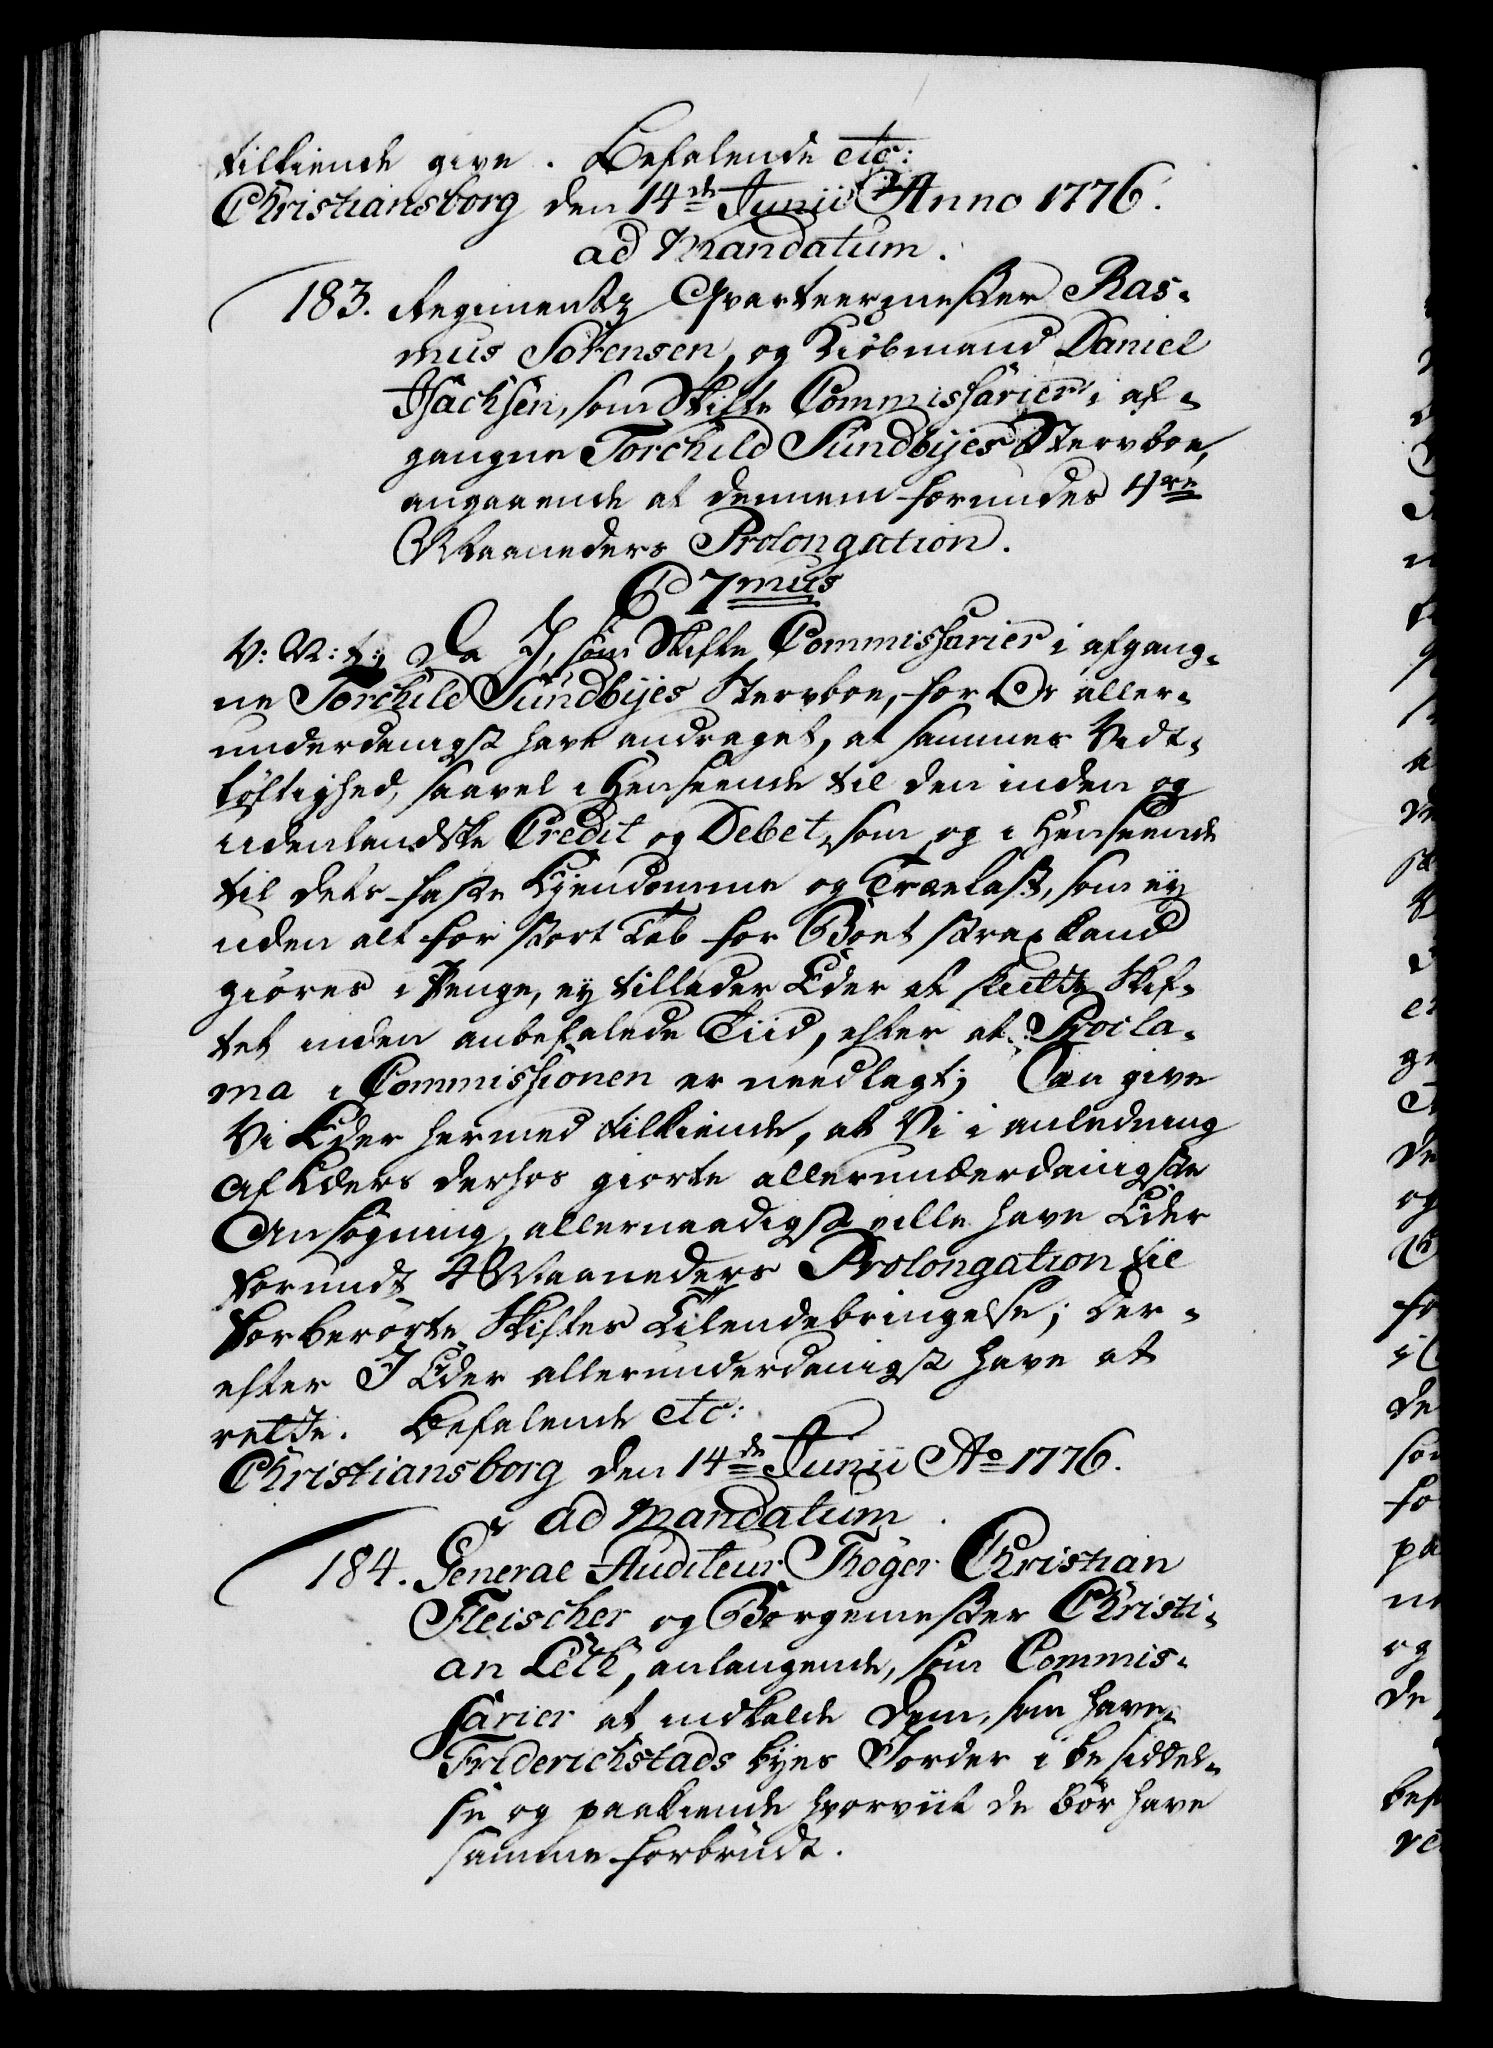 tilkiende give. Befalende etc:
Christiansborg den 14de Junii Anno 1776.
ad Mandatum.
183. Regiments Qvarteermester Ras-
mus Sörensen, og Kiöbmand Daniel
Isachsen, som Skifte Commissarier i af-
gangne Torchild Sundbyes Stervboe,
angaaende at dennem forundes 4re
Maaneders Prolongation.
C 7mus
V: V: t: Da I, som Skifte Commissarier i afgang-
ne Torchild Sundbyes Stervboe, for Os aller-
underdanigst have andraget, at sammes Vidt-
löftighed, saavel i Henseende til den inden og
udenlandske Credit og Debet, som og i Henseende
til dets faste Eyendomme og Trælast, som ey
uden alt for stort Tab for Boet strax kand
giöres i Penge, ey tillader Eder at slutte Skif-
tet inden anbefalede Tiid, efter at Procla-
ma i Commissionen er needlagt; Saa give
Vi Eder hermed tilkiende, at Vi i anledning
af Eders derhos giorte allerunderdanigste
Ansögning, allernaadigst ville have Eder
forundt 4 Maaneders Prolongation til
forberörte Skiftes Tilendebringelse; Der-
efter I Eder allerunderdanigst have at
rette. Befalende etc:
Christiansborg den 14de Junii Ao 1776.
ad Mandatum.
184. General-Auditeur Thöger Christian
Fleischer og Borgemester Christi-
an Leth, anlangende, som Commis-
sarier at indkalde dem, som have
Friderichstads Byes Jorder i besiddel-
se og paakiende hvorviit de bör have
samme forbrudt.